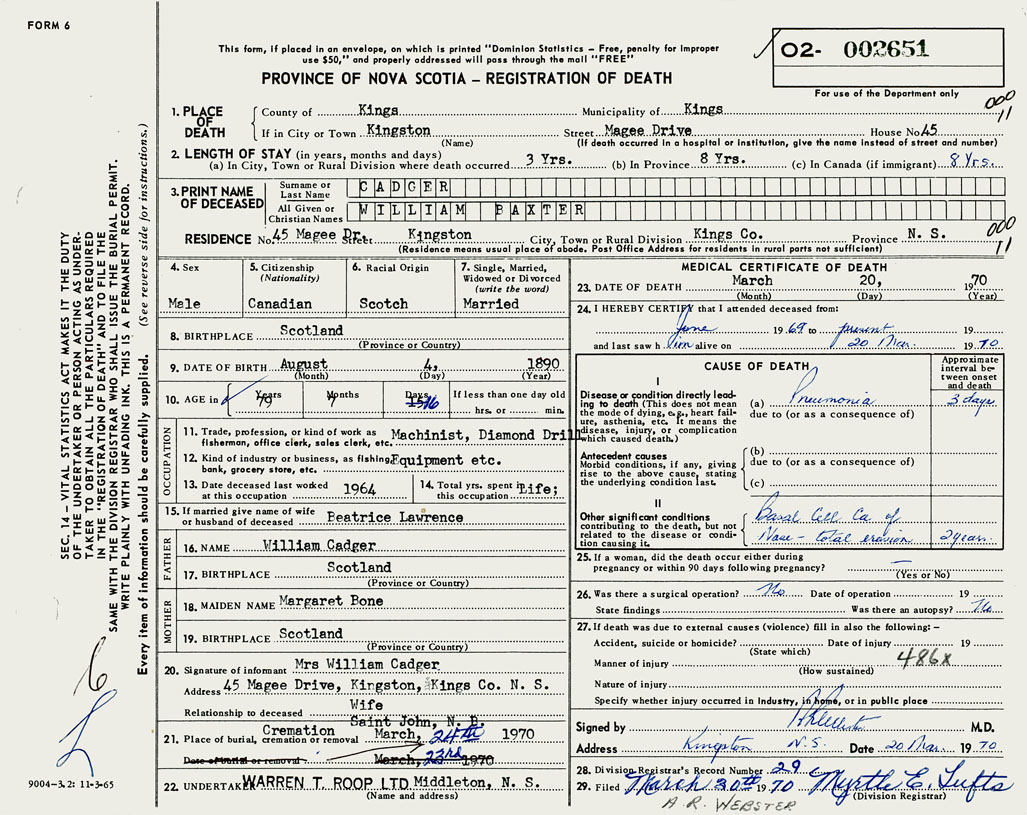 FORM 6
This form, if placed in an envelope, on which is printed "Dominion Statistics – Free, penalty for improper
use $50," and properly addressed will pass through the mail "FREE"
PROVINCE OF NOVA SCOTIA – REGISTRATION OF DEATH
02- 002651
For use of the Department only
000
11
1. PLACE OF DEATH { County of Kings Municipality of Kings
If in City or Town Kingston Street Magee Drive House No. 45
(Name) (If death occurred in a hospital or institution, give the name instead of street and number)
2. LENGTH OF STAY (in years, months and days)
(a) In City, Town or Rural Division where death occurred 3 Yrs. (b) In Province 8 Yrs. (c) In Canada (if immigrant) 8 Yrs.
3. PRINT NAME OF DECEASED
Surname or Last Name CADGER
All Given or Christian Names WILLIAM BAXTER
000
11
RESIDENCE No. 45 Magee Dr. Street Kingston City, Town or Rural Division Kings Co. Province N. S.
(Residence means usual place of abode. Post Office Address for residents in rural parts not sufficient)
4. Sex
Male
5. Citizenship
(Nationality)
Canadian
6. Racial Origin
Scotch
7. Single, Married,
Widowed or Divorced
(write the word)
Married
8. BIRTHPLACE Scotland
(Province or Country)
9. DATE OF BIRTH August 4, 1890
(Month) (Day) (Year)
10. AGE in Years Months Days If less than one day old
79 7 16 hrs. or min.
OCCUPATION
11. Trade, profession, or kind of work as Machinist, Diamond Drill
fisherman, office clerk, sales clerk, etc.
12. Kind of industry or business, as fishing, Equipment etc.
bank, grocery store, etc.
13. Date deceased last worked
at this occupation 1964
14. Total yrs. spent in
this occupation Life;
15. If married give name of wife
or husband of deceased Beatrice Lawrence
FATHER
16. NAME William Cadger
17. BIRTHPLACE Scotland
(Province or Country)
MOTHER
18. MAIDEN NAME Margaret Bone
19. BIRTHPLACE Scotland
(Province or Country)
20. Signature of informant Mrs William Cadger
Address 45 Magee Drive, Kingston, Kings Co. N. S.
Relationship to deceased Wife
Saint John, N. B.
21. Place of burial, cremation or removal Cremation March, 24th 1970
Date of burial or removal March, 23rd 1970
22. UNDERTAKER WARREN T. ROOP LTD Middleton, N. S.
(Name and address)
MEDICAL CERTIFICATE OF DEATH
23. DATE OF DEATH March 20, 1970
(Month) (Day) (Year)
24. I HEREBY CERTIFY that I attended deceased from:
June 1969 to present 19
and last saw him alive on 20 Mar. 1970
CAUSE OF DEATH
Approximate
interval be-
tween onset
and death
I
Disease or condition directly lead-
ing to death (This does not mean
the mode of dying, e.g., heart fail-
ure, asthenia, etc. It means the
disease, injury, or complication
which caused death.)
(a) Pneumonia 3 days
due to (or as a consequence of)
Antecedent causes
Morbid conditions, if any, giving
rise to the above cause, stating
the underlying condition last.
(b)
due to (or as a consequence of)
(c)
II
Other significant conditions
contributing to the death, but not
related to the disease or condi-
tion causing it.
Basal Cell Ca of
Nose – total erosion 2 years
25. If a woman, did the death occur either during
pregnancy or within 90 days following pregnancy? —
(Yes or No)
26. Was there a surgical operation? No Date of operation 19
State findings Was there an autopsy? No
27. If death was due to external causes (violence) fill in also the following: –
Accident, suicide or homicide? Date of injury 19
(State which)
Manner of injury 486x
(How sustained)
Nature of injury
Specify whether injury occurred in Industry, in home, or in public place
Signed by M.D.
Address Kingston N.S. Date 20 Mar. 1970
28. Division Registrar's Record Number 29
29. Filed March 30th 1970 Myrtle E. Tufts
(Division Registrar)
A. R. WEBSTER
SEC. 14 – VITAL STATISTICS ACT MAKES IT THE DUTY
OF THE UNDERTAKER OR PERSON ACTING AS UNDER-
TAKER TO OBTAIN ALL THE PARTICULARS REQUIRED
IN THE "REGISTRATION OF DEATH" AND TO FILE THE
SAME WITH THE DIVISION REGISTRAR WHO SHALL ISSUE THE BURIAL PERMIT.
WRITE PLAINLY WITH UNFADING INK. THIS IS A PERMANENT RECORD.
Every item of information should be carefully supplied. (See reverse side for instructions.)
6
9004-3.2: 11-3-65